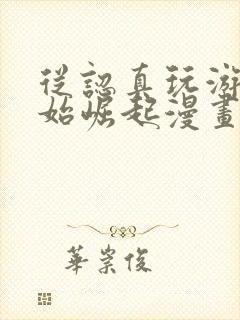 從認真玩游
始崛起漫畫
華崇俊